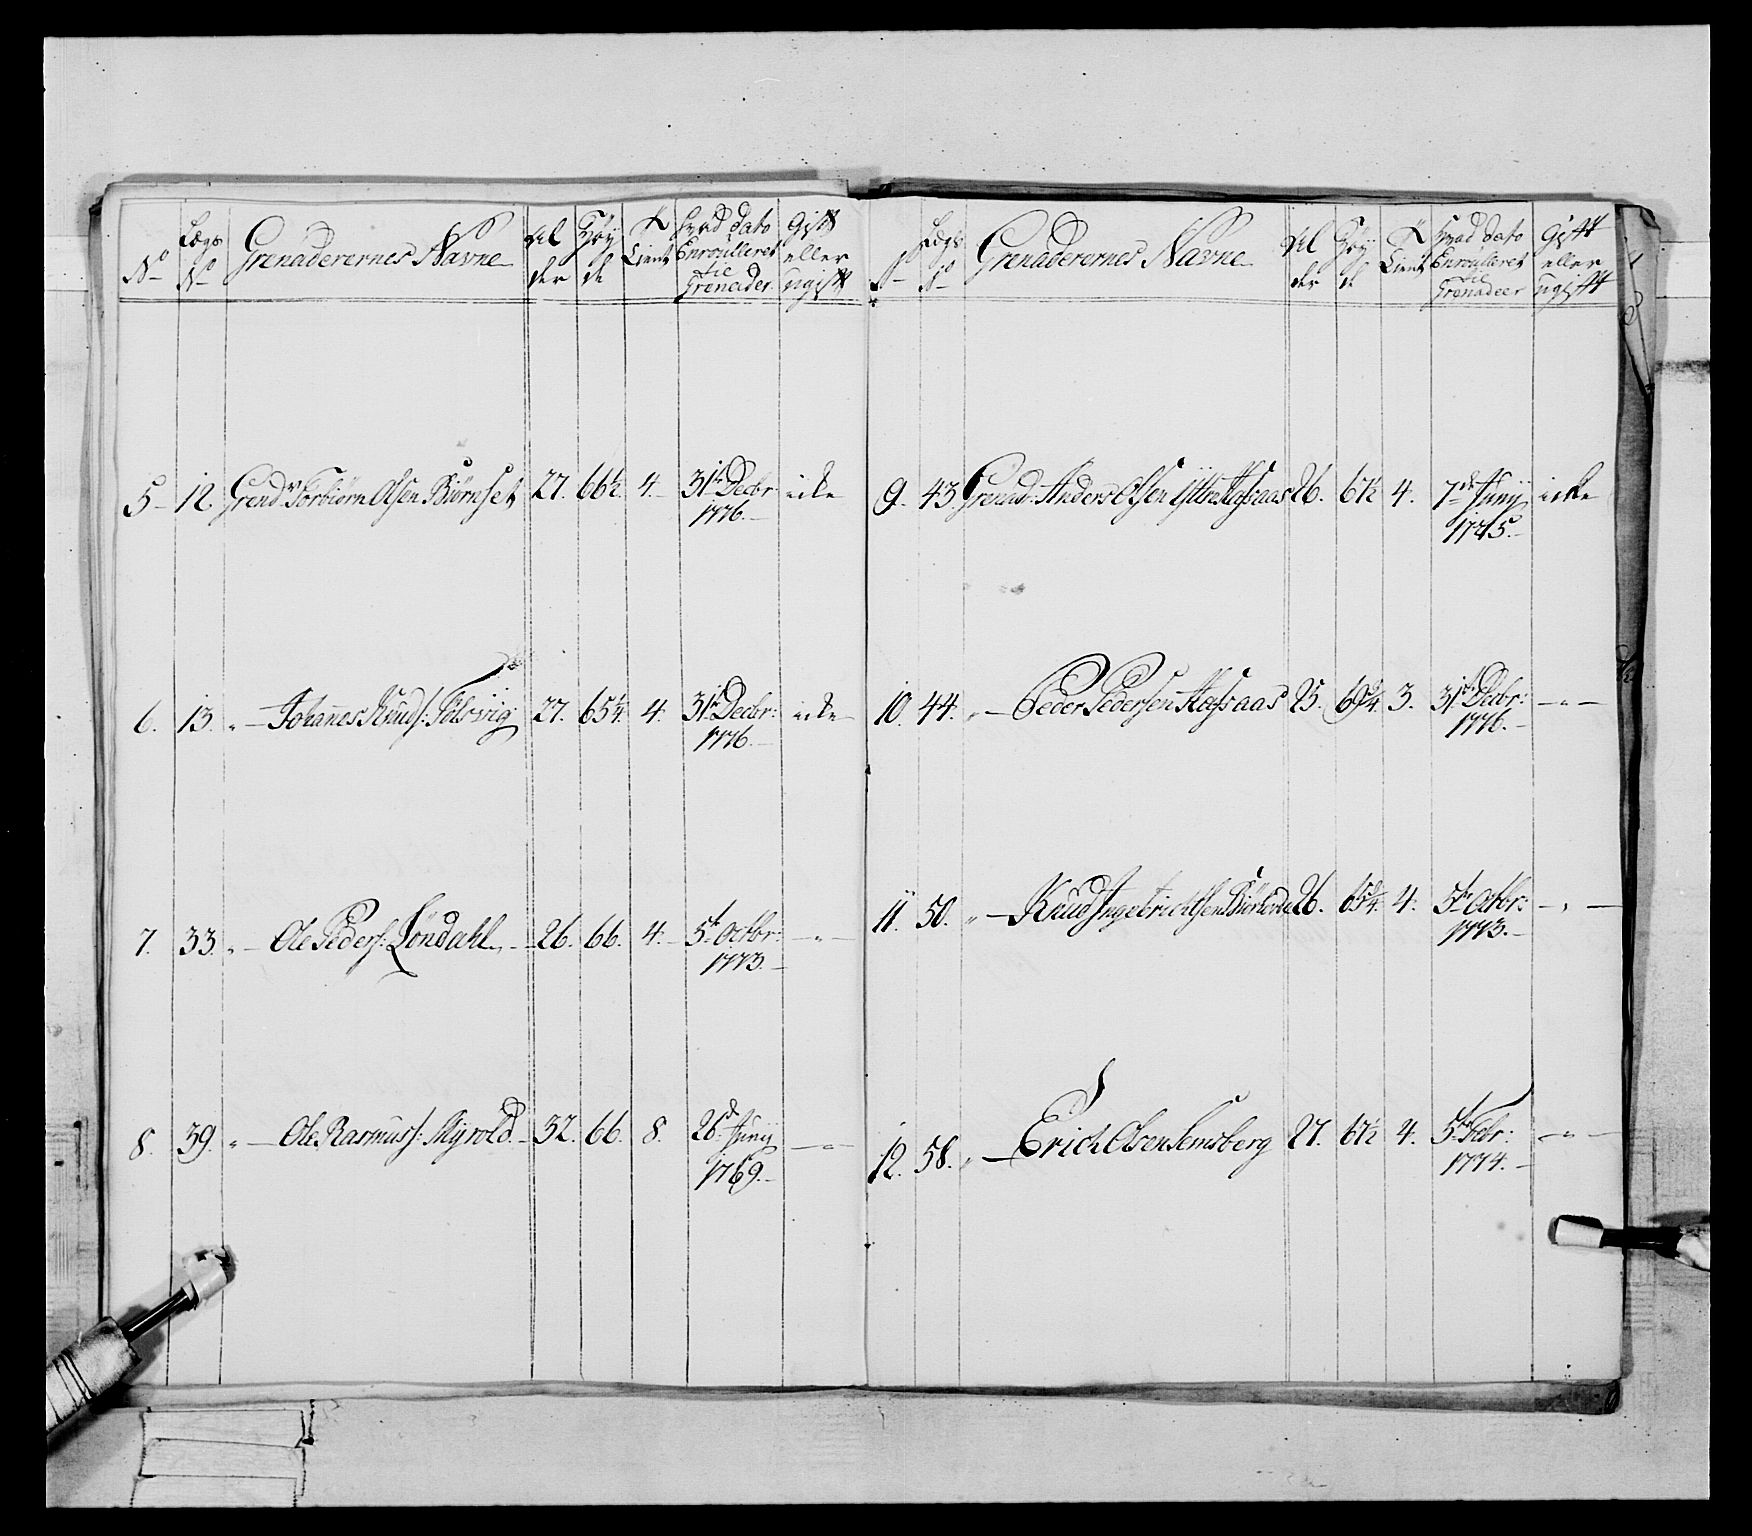 No Lægs No Grenaderernes Navne Alder Høyde Tient Hvad dato Enroulleret til Grenader Gift eller ugift
5 12. Grend. Torbiørn Olsen Biørnset 27. 66½. 4. 31te Decbr 1776. icke
6. 13. " Johannes Knuds: Tolsvig 27. 65¼. 4. 31te Decbr: 1776. icke
7. 33. " Ole Peders: Løndahl 26. 66. 4. 5te Octbr: 1773. — " —
8. 39. " Ole Rasmuss: Myrold 32. 66. 8. 26d Junij 1769. — " —
No Lægs No Grenaderernes Navne Alder Høyde Tient Hvad dato Enroulleret til Grenadeer Gift eller ugift
9. 43. Grenad. Anders Olsen Ytter Hafsaas 26. 67½ 4. 7de Junij 1775. icke
10. 44. " Peder Pedersen Hafsaas 25. 69¾. 3. 31te Decbr: 1776. — " —
11 50. " Knud Ingebrichtsen 26. 65¾. 4. 5te Octbr: 1773. — " —
12. 58. " Erich Olsen Semsberg 27. 67½ 4. 5te Febr: 1774. — " —